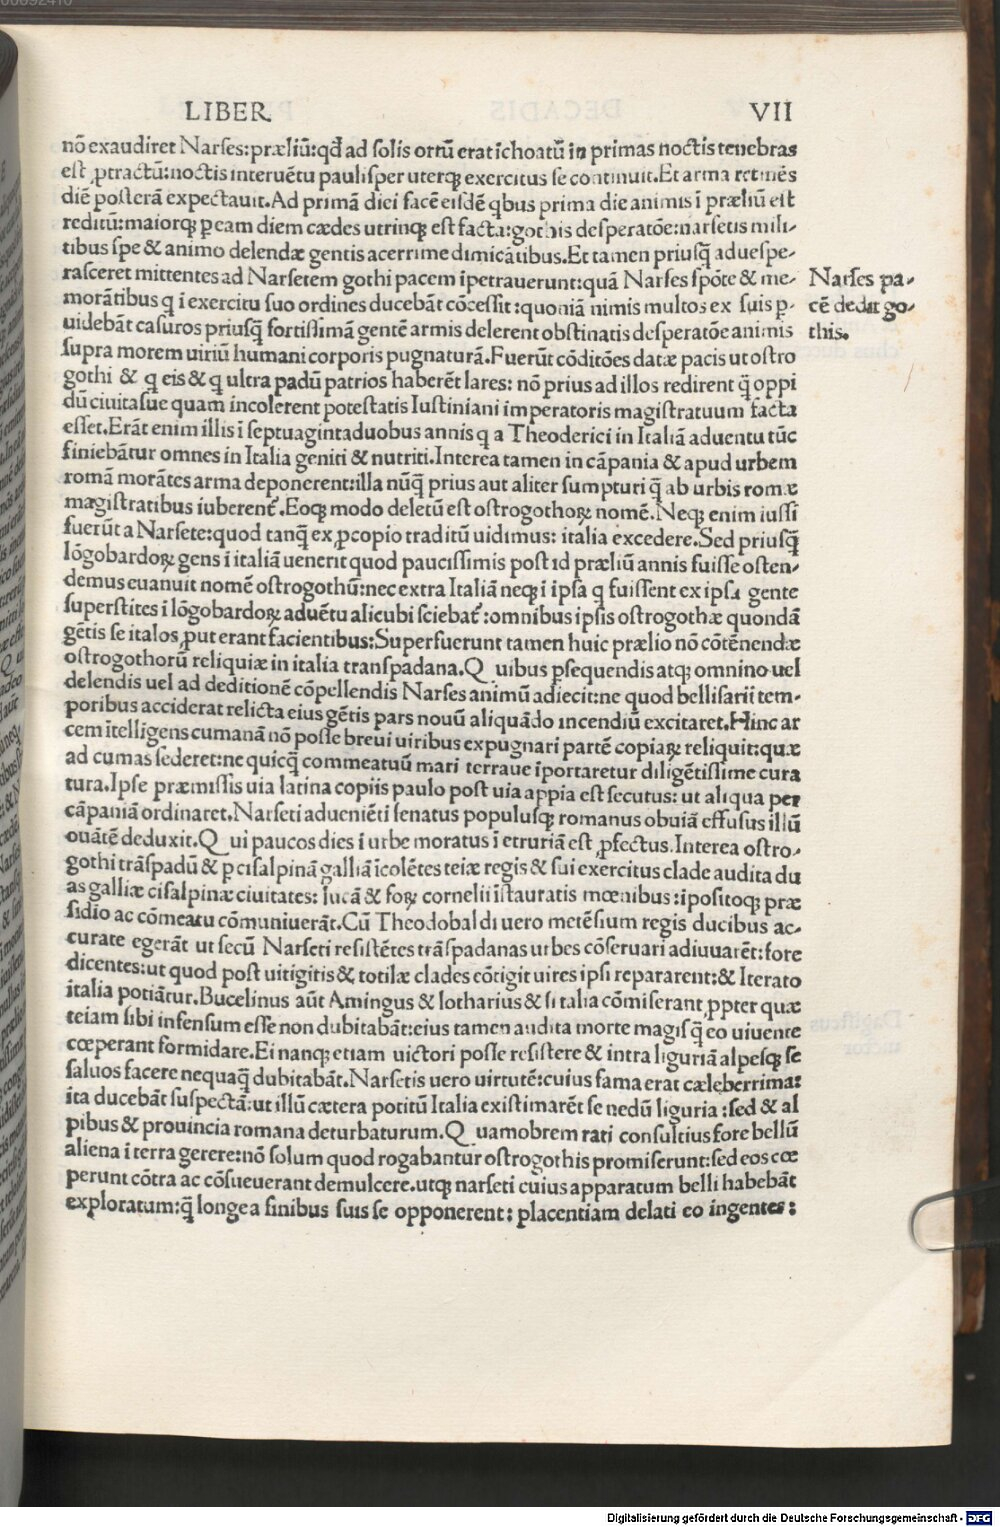 LIBER VII
nō exaudiret Narses:præliū:qđ ad solis ortū erat īchoatū in primas noctis tenebras
est ꝓtractū:noctis interuētu paulisper uterqꝫ exercitus se continuit.Et arma retinēs
diē posterā expectauit.Ad primā diei facē eisdē qbus prima die animis ī præliū est
reditū:maiorqꝫ ꝑ eam diem cædes utrinqꝫ est facta:gothis desperatōe:narsetis mili-
tibus spe & animo delendæ gentis acerrime dimicātibus.Et tamen priusq̄ aduespe-
rasceret mittentes ad Narsetem gothi pacem īpetrauerunt:quā Narses spōte & me-
morātibus q ī exercitu suo ordines ducebāt cōcessit:quoniā nimis multos ex suis p-
uidebāt casuros priusq̄ fortissimā gentē armis delerent obstinatis desperatōe animis
supra morem uiriū humani corporis pugnaturā.Fuerūt cōditōes datæ pacis ut ostro
gothi & q eis & q ultra padū patrios haberēt lares: nō prius ad illos redirent q̄ oppi
dū ciuitasue quam incolerent potestatis Iustiniani imperatoris magistratuum facta
esset.Erāt enim illis ī septuagintaduobus annis q a Theoderici in Italiā aduentu tūc
finiebātur omnes in Italia geniti & nutriti.Interea tamen in cāpania & apud urbem
romā morātes arma deponerent:illa nūq̄ prius aut aliter sumpturi q̄ ab urbis romæ
magistratibus iuberent᷑.Eoqꝫ modo deletū est ostrogothoꝝ nomē.Neqꝫ enim iussi
fuerūt a Narsete:quod tanq̄ ex ꝓcopio traditū uidimus: italia excedere.Sed priusq̄
lōgobardoꝝ gens ī italiā uenerit quod paucissimis post id præliū annis fuisse osten-
demus euanuit nomē ostrogothū:nec extra Italiā neqꝫ ī ipsa q fuissent ex ipsa gente
superstites ī lōgobardoꝝ aduētu alicubi sciebat᷑:omnibus ipsis ostrogothæ quondā
gētis se italos ꝓut erant facientibus:Superfuerunt tamen huic prælio nō cōtēnendæ
ostrogothorū reliquiæ in italia transpadana.Q uibus ꝑsequendis atqꝫ omnino uel
delendis uel ad deditionē cōpellendis Narses animū adiecit:ne quod bellisarii tem-
poribus acciderat relicta eius gētis pars nouū aliquādo incendiū excitaret.Hinc ar
cem ītelligens cumanā nō posse breui uiribus expugnari partē copiaꝝ reliquit:quæ
ad cumas sederet:ne quicq̄ commeatuū mari terraue īportaretur diligētissime cura
tura.Ipse præmissis uia latina copiis paulo post uia appia est secutus: ut aliqua per
cāpaniā ordinaret.Narseti adueniēti senatus populusqꝫ romanus obuiā effusus illū
ouātē deduxit.Q ui paucos dies ī urbe moratus ī etruriā est ꝓfectus.Interea ostro-
gothi trāspadū & p cisalpinā galliā īcolētes teiæ regis & sui exercitus clade audita du
as galliæ cisalpinæ ciuitates: lucā & foꝝ cornelii īstauratis mœnibus:ipositoqꝫ præ
sidio ac cōmeatu cōmuniuerāt.Cū Theodobaldi uero metēsium regis ducibus ac-
curate egerāt ut secū Narseti resistētes trāspadanas urbes cōseruari adiuuarēt:fore
dicentes:ut quod post uitigitis & totilæ clades cōtigit uires ipsi repararent:& Iterato
italia potiātur.Bucelinus aūt Amingus & lotharius & si talia cōmiserant ꝓpter quæ
teiam sibi infensum esse non dubitabāt:eius tamen audita morte magisq̄ eo uiuente
cœperant formidare.Ei nanqꝫ etiam uictori posse resistere & intra liguriā alpesqꝫ se
saluos facere nequaq̄ dubitabāt.Narsetis uero uirtutē:cuius fama erat cæleberrima:
ita ducebāt suspectā:ut illū cætera potitū Italia existimarēt se nedū liguria :sed & al
pibus & prouincia romana deturbaturum.Q uamobrem rati consultius fore bellū
aliena ī terra gerere:nō solum quod rogabantur ostrogothis promiserunt:sed eos cœ
perunt cōtra ac cōsueuerant demulcere.utqꝫ narseti cuius apparatum belli habebāt
exploratum:q̄ longe a finibus suis se opponerent: placentiam delati eo ingentes:
Narses pa-
cē dedit go-
this.
Digitalisierung gefördert durch die Deutsche Forschungsgemeinschaft - DFG